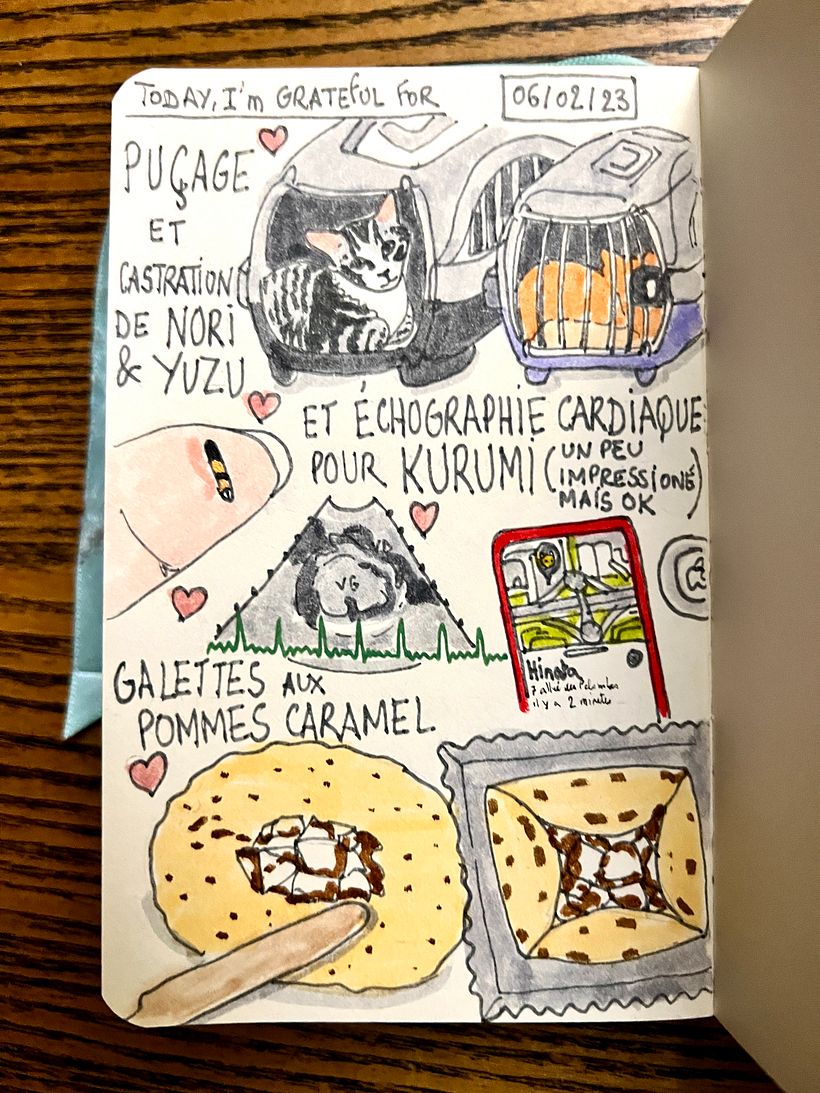 TODAY, I'm GRATEFUL FOR
06/02/23
PUÇAGE
ET
CASTRATION
DE NORI
& YUZU
ET ÉCHOGRAPHIE CARDIAQUE
POUR KURUMI (UN PEU
IMPRESSIONÉ
MAIS OK)
VG
VD
Hinata
7 allée des Palombes
il y a 2 minutes
GALETTES AUX
POMMES CARAMEL